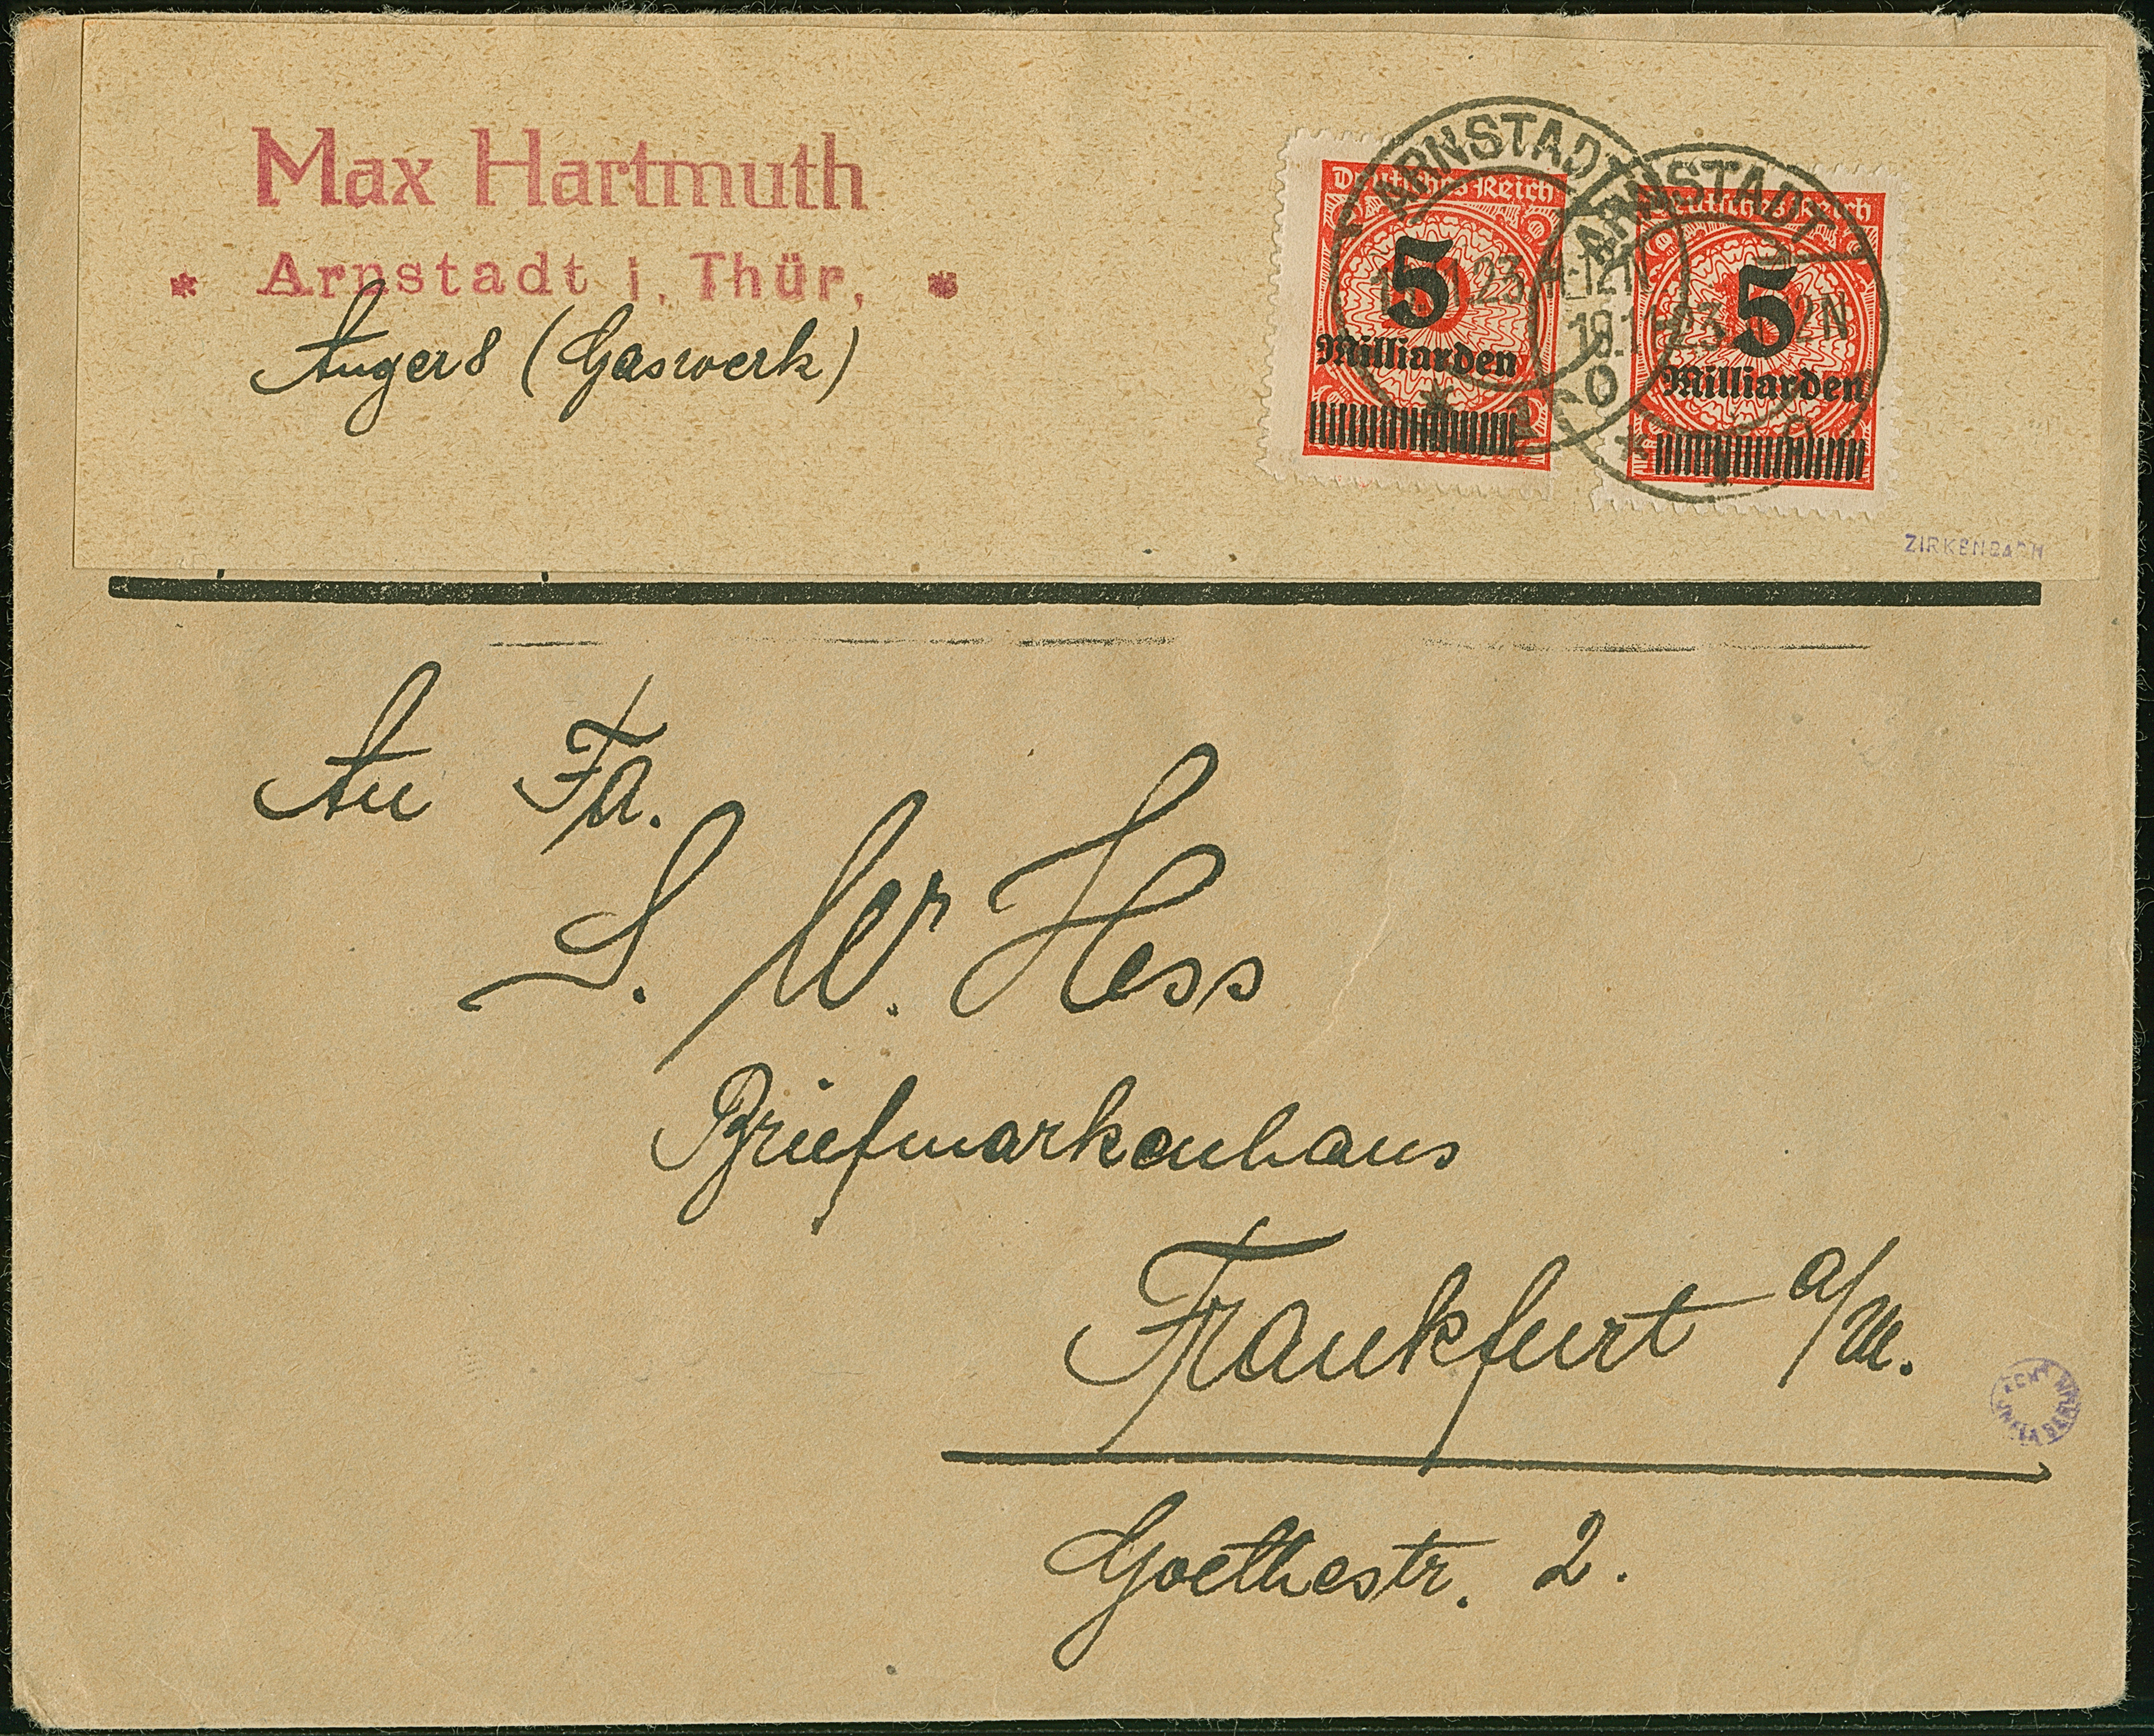 Max Hartmuth
* Arnstadt i. Thür. *
Anger 8 (Gaswerk)
Deutsches Reich
5
Milliarden
Deutsches Reich
5
Milliarden
ARNSTADT
ARNSTADT
ZIRKENBACH
An Fa.
S. W. Hess
Briefmarkenhaus
Frankfurt a/M.
Goethestr. 2.